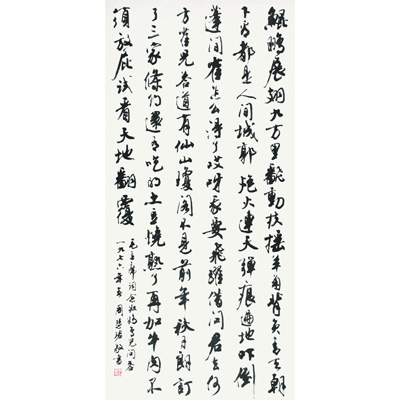 鯤鵬展翅九万里翻動扶搖羊角背負青天朝
下看都是人间城郭炮火連天彈痕遍地吓倒
蓬间雀怎么得了哎呀我要飛躍借问君去何
方雀兒答道有仙山瓊阁不見前年秋月朗訂
了三家條约還有吃的土豆燒熟了再加牛肉不
須放屁试看天地翻覆
毛主席词念奴娇鸟兒问答
一九七六年春周慧珺敬書